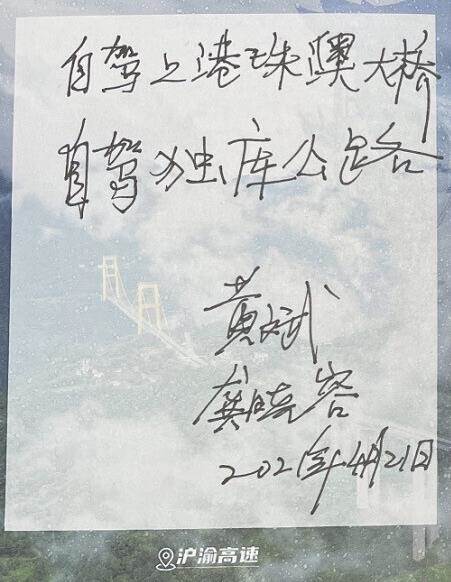 自驾上港珠澳大桥
自驾独库公路
黄斌
龚晓容
2021年4月21日
沪渝高速